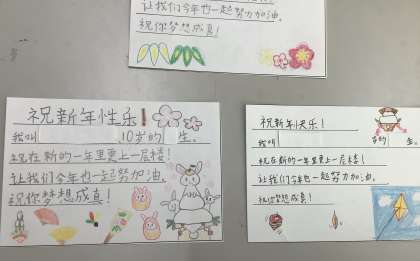 让我们今年也一起努力加油。
祝你梦想成真！
祝新年快乐！
我叫 10岁的 生。
祝在新的一年里更上一层楼！
让我们今年也一起努力加油。
祝你梦想成真！
祝新年快乐！
我叫 岁的 生。
祝在新的一年里更上一层楼！
让我们今年也一起努力加油。
祝你梦想成真！